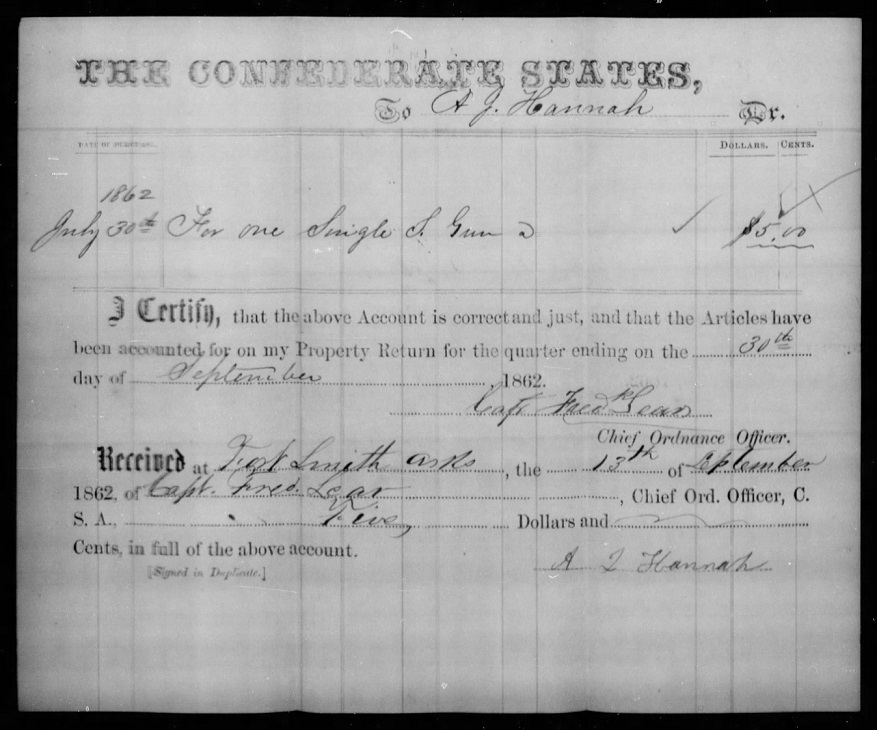 THE CONFEDERATE STATES,
To A J. Hannah Dr.
DATE OF PURCHASE. DOLLARS. CENTS.
1862
July 30th For one Single S. Gun $5.00
I Certify, that the above Account is correct and just, and that the Articles have
been accounted for on my Property Return for the quarter ending on the 30th
day of September 1862.
Capt Fredk Lear
Chief Ordnance Officer.
Received at Fort Smith Arks, the 13th of September
1862, of Capt. Fred. Lear, Chief Ord. Officer, C.
S. A., Five, Dollars and
Cents, in full of the above account.
[Signed in Duplicate.]
A J Hannah